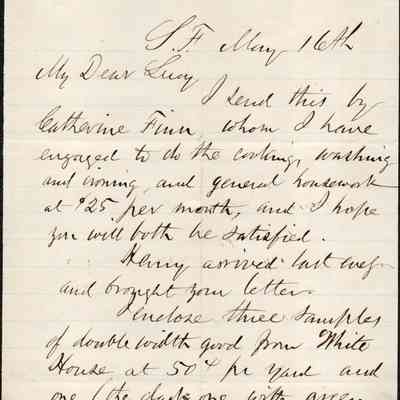 S.F. May 16th
My Dear Lucy
I send this by
Catherine Finn, whom I have
engaged to do the cooking, washing
and ironing, and general housework
at $25 per month, and I hope
you will both be satisfied.
Henry arrived last eve'g
and brought your letter.
Enclose three samples
of double width good from White
House at 50¢ pr yard and
one (the dark one with green